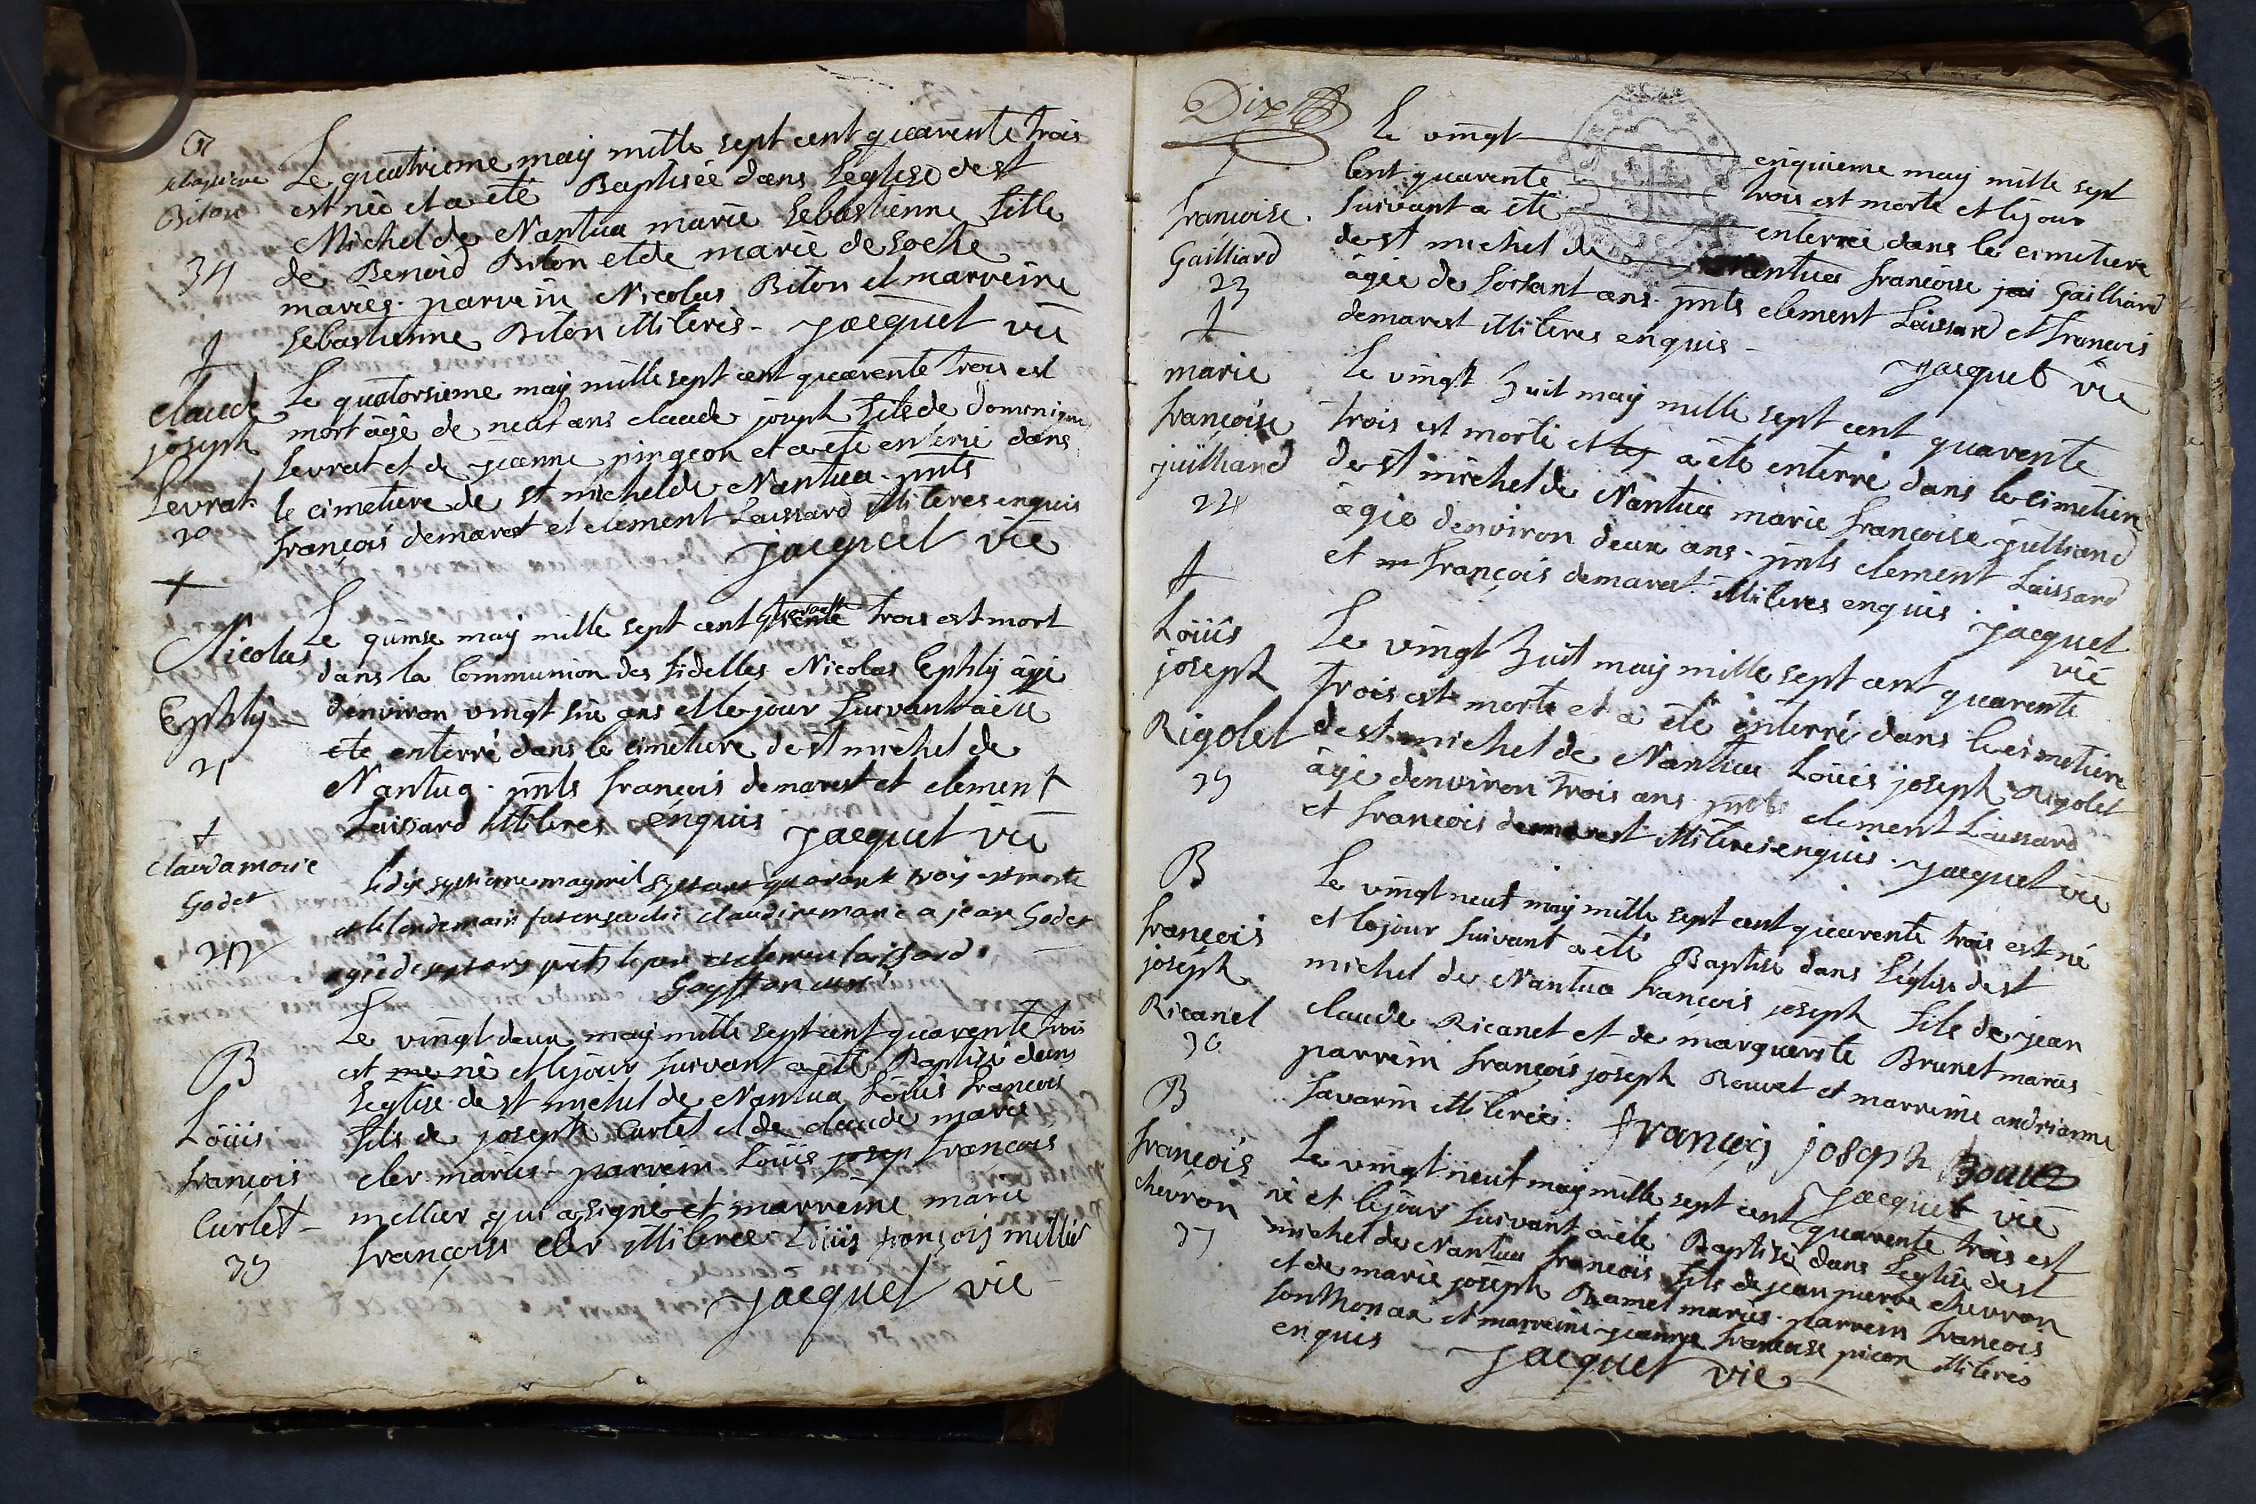 B
Sebastiene
Biton
34
Le quatrieme may mille sept cent quarente trois
est née et a été Baptisée dans Leglise de st
Michel de Nantua marie Sebastienne fille
de Benoid Biton et de marie de Loche
maries. parrein Nicolas Biton et marreine
Sebastienne Biton illiterés - jacquet vic
†
claude
joseph
Levrat
20
Le quatorsieme may mille sept cent quarente trois est
mort âgé de neuf ans claude joseph fils de Dominique
Levrat et de jeanne pingeon et a été enterré dans
le cimetiere de st michel de Nantua. pnts
françois demarest et clement Laissard illiteres enquis
jacquet vic
†
Nicolas
Ephly
21
Le quinse may mille sept cent quarente trois est mort
dans la Communion des fidelles Nicolas Ephly âgé
denviron vingt six ans et le jour suivant a été
ete enterré dans le cimetiere de st michel de
Nantua. pnts françois demarest et clement
Laissard illiteres enquis jacquet vic
†
Claudamarie
Godet
22
le dix septieme may mil sept cent quarante trois est morte
et le lendemain fut ensevelie claudine marie a jean Godet
agée de sept ans pnts le pere et clement laissard
Gayffon curé
B
Loüis
françois
Curtet
35
Le vingt deux may mille sept cent quarente trois
est me né et le jour suivant a été Baptisé dans
Leglise de st michel de Nantua Loüis françois
fils de joseph Curtet et de claude marie
cler mariés - parrein Loüis josep françois
mellier qui a signé et marreine marie
françoise cler illiterée Loüis françois millier
jacquet vic
Dix
†
francoise
Gailliard
23
Le vingt cinquieme may mille sept
Cent quarente trois est morte et le jour
suivant a été enterrée dans le cimetiere
de st michel de Nantua françoise jai Gailliard
âgée de soisant ans. pnts clement Laissard et françois
demarest illiteres enquis -
jacquet vic
†
marie
françoise
juilliand
24
Le vingt huit may mille sept cent quarente
trois est morte et lej a été enterré dans le cimetiere
de st michel de Nantua marie françoise juilliand
âgée denviron deux ans - pnts clement Laissard
et m françois demarest. illiteres enquis. jacquet
vic
†
Loüis
joseph
Rigolet
25
Le vingt huit may mille sept cent quarente
trois est morte et a été enterré dans le cimetiere
de st michel de Nantua Loüis joseph Rigolet
âgé denviron trois ans pnts clement Laissard
et françois demarest illiteres enquis. jacquet vic
B
françois
joseph
Ricanet
36
Le vingt neuf may mille sept cent quarente trois est né
et le jour suivant a été Baptisé dans Léglise de st
michel de Nantua françois joseph fils de jean
claude Ricanet et de marguerite Brunet mariés
parrein françois joseph Bouvet et marreine andrianne
Savarin illiterée. françois joseph Bouvet
jacquet vic
B
françois
chevron
37
Le vingt neuf may mille sept cent quarente trois est
né et le jour suivant a été Baptisé dans Leglise de st
michel de Nantua françois fils de jean pierre chevron
et de marie joseph Ramel mariés. parrein françois
sonthonax et marreine jeanne francoise picon illiterés
enquis jacquet vic